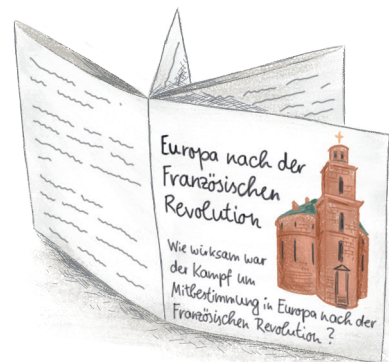 Europa nach der
Französischen
Revolution
Wie wirksam war
der Kampf um
Mitbestimmung in Europa nach der
Französischen Revolution?